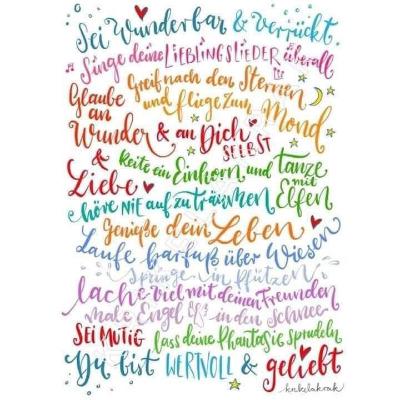 Sei Wunderbar & verrückt.
Singe deine LIEBLINGSLIEDER überall
Greif nach den Sternen
und fliege zum Mond
Glaube
an
Wunder & an Dich
SELBST
& Reite ein Einhorn und tanze
mit
Liebe Elfen
höre NIE auf zu träumen
Genieße dein Leben
Laufe barfuß über Wiesen
Springe in Pfützen
lache viel mit deinen Freunden
male Engel in den Schnee
SEI MUTIG lass deine Phantasie sprudeln
Du bist WERTVOLL & geliebt